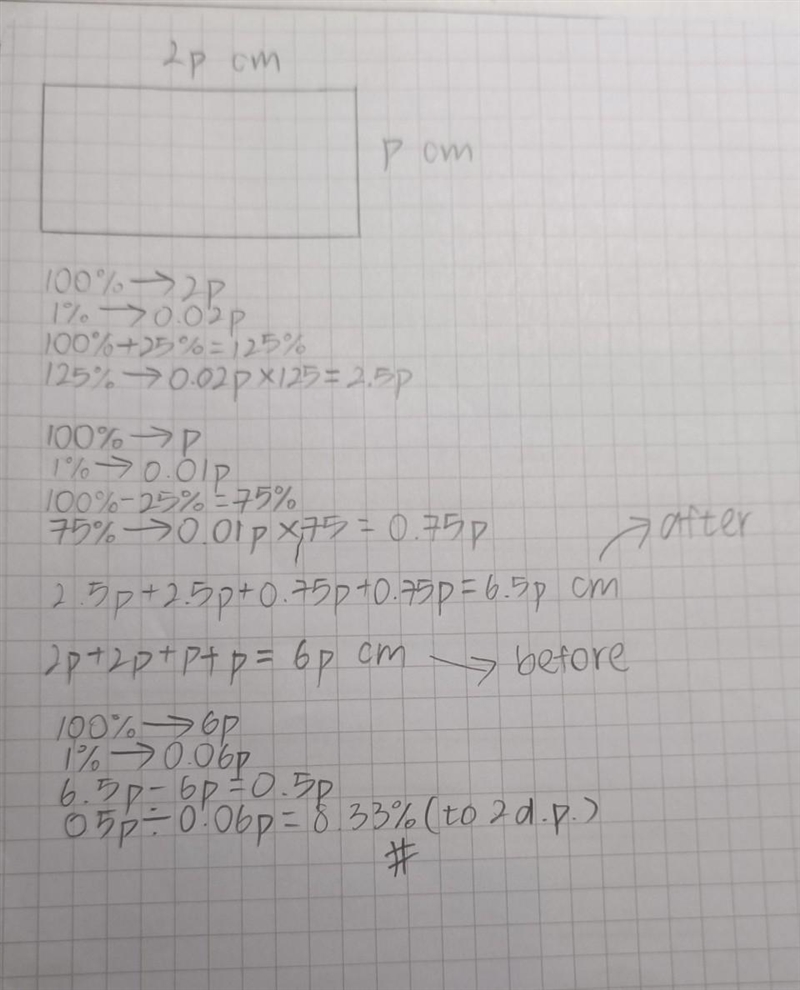 2p cm
p cm
100% → 2p
1% → 0.02p
100%+25% = 125%
125% → 0.02p×125 = 2.5p
100% → p
1% → 0.01p
100%-25% = 75%
75% → 0.01p×75 = 0.75p
after
2.5p+2.5p+0.75p+0.75p = 6.5p cm
2p+2p+p+p = 6p cm → before
100% → 6p
1% → 0.06p
6.5p - 6p = 0.5p
05p ÷ 0.06p = 8.33% (to 2d.p.)
#